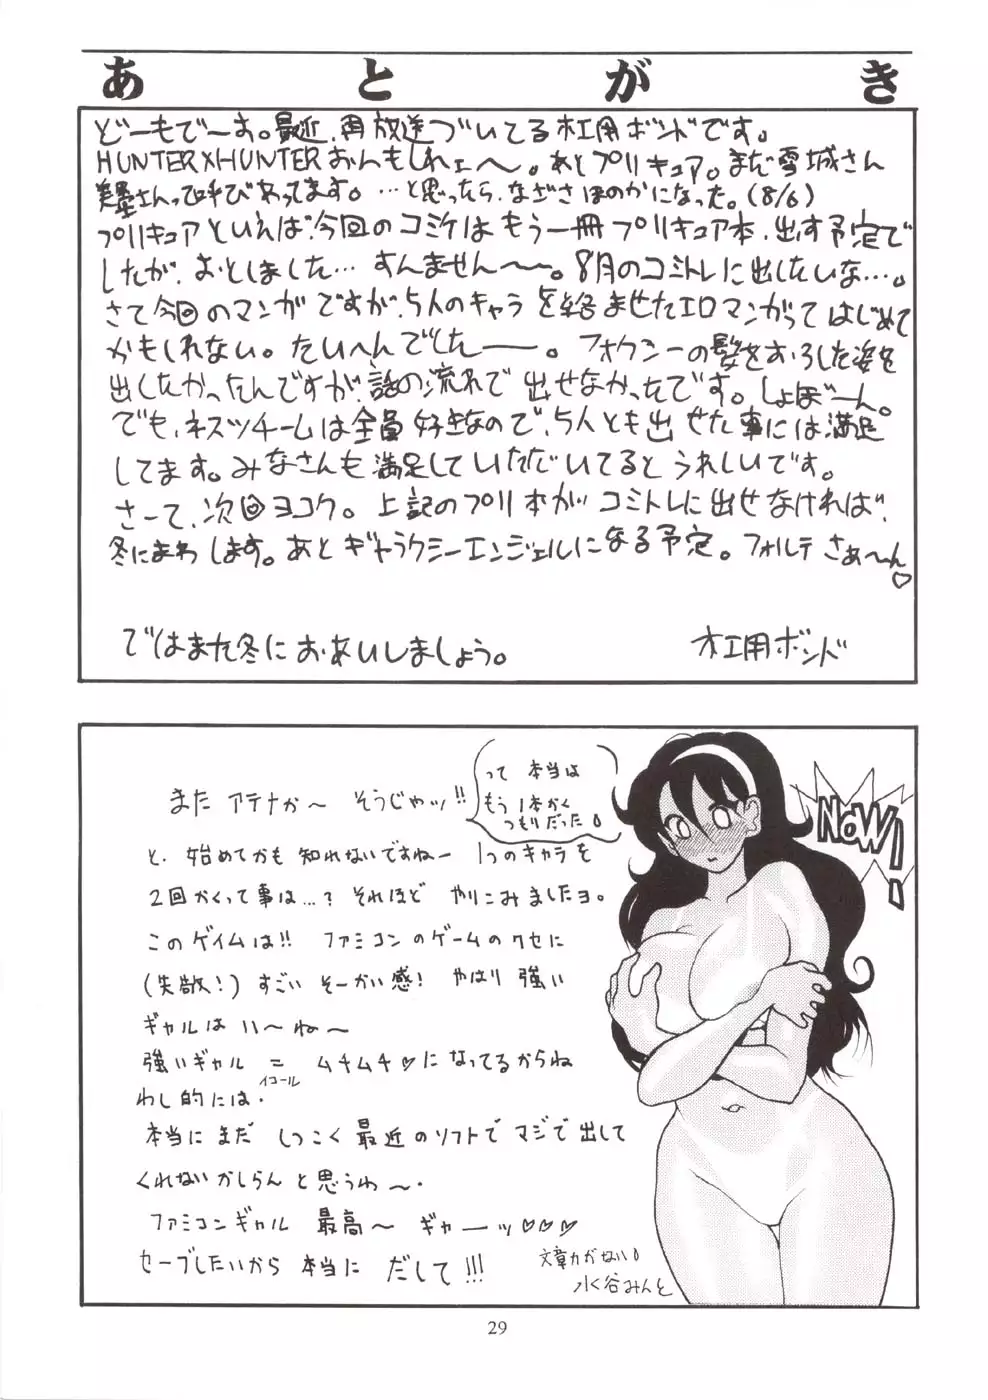 あとがき
どーもでーす。最近、再放送づいてる木工用ボンドです。
HUNTER×HUNTERおんもしれェ〜。あとプリキュア。まだ雪城さん
美墨さんって呼びあってます。…と思ったら、なぎさほのかになった。(8/6)
プリキュアといえば、今回のコミケはもう一冊プリキュア本、出す予定で
したが、おとしました…すんません〜〜。8月のコミトレに出したいな…。
さて今回のマンガですが、5人のキャラを絡ませたエロマンガってはじめて
かもしれない。たいへんでしたー。フォクシーの髪をおろした姿を
出したかったんですが、話の流れで出せなかったです。しょぼーん。
でも、ネスツチームは全員好きなので、5人とも出せた事には満足
してます。みなさんも満足していただいてるとうれしいです。
さーて、次回ヨコク。上記のプリ本がコミトレに出せなければ、
冬にまわします。あとギャラクシーエンジェルになる予定。フォルテさぁ〜ん♡
ではまた冬におあいしましょう。
木工用ボンド
またアテナか〜 そうじゃッ!!
って 本当は
もう1本かく
つもりだった
NOW!
と、始めてかも知れないですねー 1つのキャラを
2回かくって事は…? それほど やりこみましたヨ。
このゲイムは!! ファミコンのゲームのクセに
(失敬!) すごい そーかい感! やはり 強い
ギャルは い〜ね〜
強いギャル = ムチムチ♡になってるからね
イコール
わし的には。
本当に まだ しつこく 最近のソフトで マジで出して
くれないかしらんと思うわ〜。
ファミコンギャル 最高〜 ギャーーッ♡♡♡
セーブしたいから 本当に だして!!!
文章力がない
水谷みんと
29